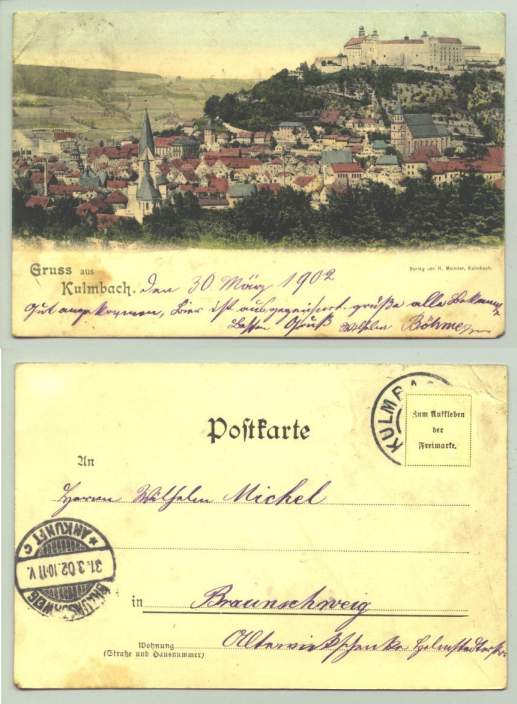 Gruss aus
Kulmbach. den 30 März 1902
Verlag von H. Meister, Kulmbach.
Gut angekommen, Bier ist ausgezeichnet. grüße alle Bekannte
Besten Gruß Wilhelm Böhme
KULMBA
Zum Aufkleben
der
Freimarke.
Postkarte
An
Herrn Wilhelm Michel
BRAUNSCHWEIG
31.3.02.10-11 V.
* ANKUNFT C
in Braunschweig
Wohnung
(Straße und Hausnummer)
Alterwiekschenke Helmstedterstr